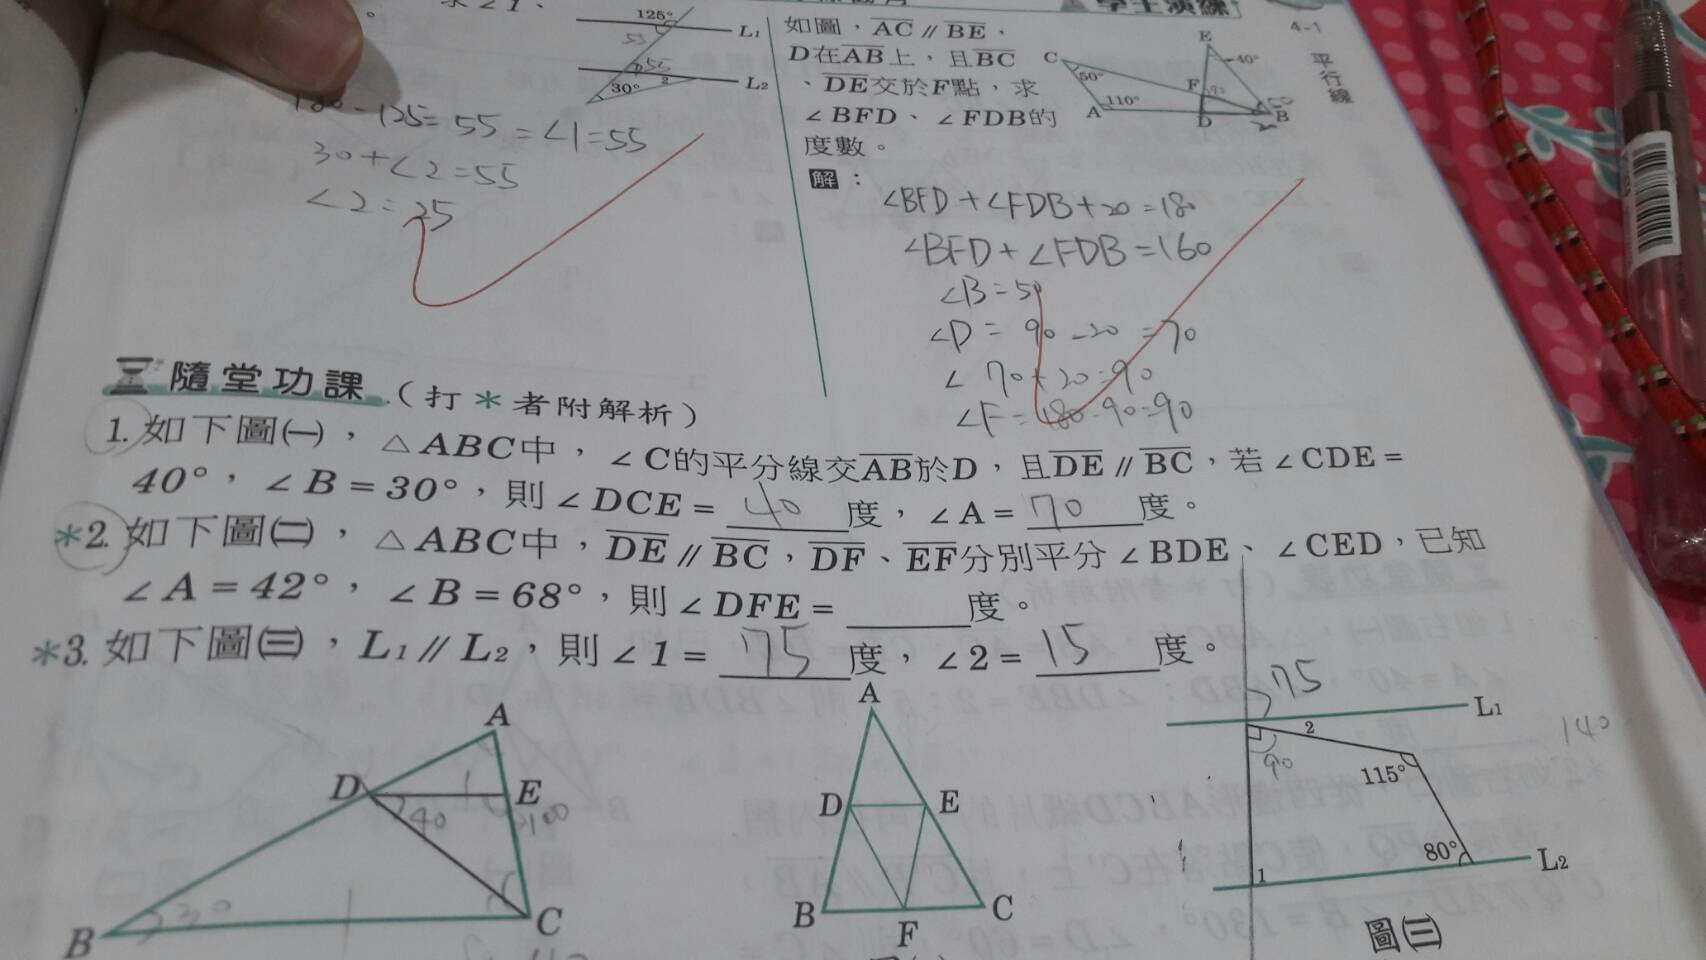 125°
L₁
55
55
2
L₂
30°
180-125=55=∠1=55
30+∠2=55
∠2=25
學生演練
4-1
平行線
如圖，AC∥BE，
D在AB上，且BC
、DE交於F點，求
∠BFD、∠FDB的
度數。
E
40°
C
50°
F
A
110°
D
B
解：
∠BFD+∠FDB+20=180
∠BFD+∠FDB=160
∠B=50
∠D=90-20=70
∠70+20=90
∠F=180-90=90
隨堂功課（打*者附解析）
1.如下圖㈠，△ABC中，∠C的平分線交AB於D，且DE∥BC，若∠CDE=
40°，∠B=30°，則∠DCE=40度，∠A=70度。
*2.如下圖㈡，△ABC中，DE∥BC，DF、EF分別平分∠BDE、∠CED，已知
∠A=42°，∠B=68°，則∠DFE=______度。
*3.如下圖㈢，L₁∥L₂，則∠1=75度，∠2=15度。
A
D
E
40
100
30
B
C
A
D
E
B
F
C
75
L₁
2
140
90
115°
80°
1
L₂
圖㈢